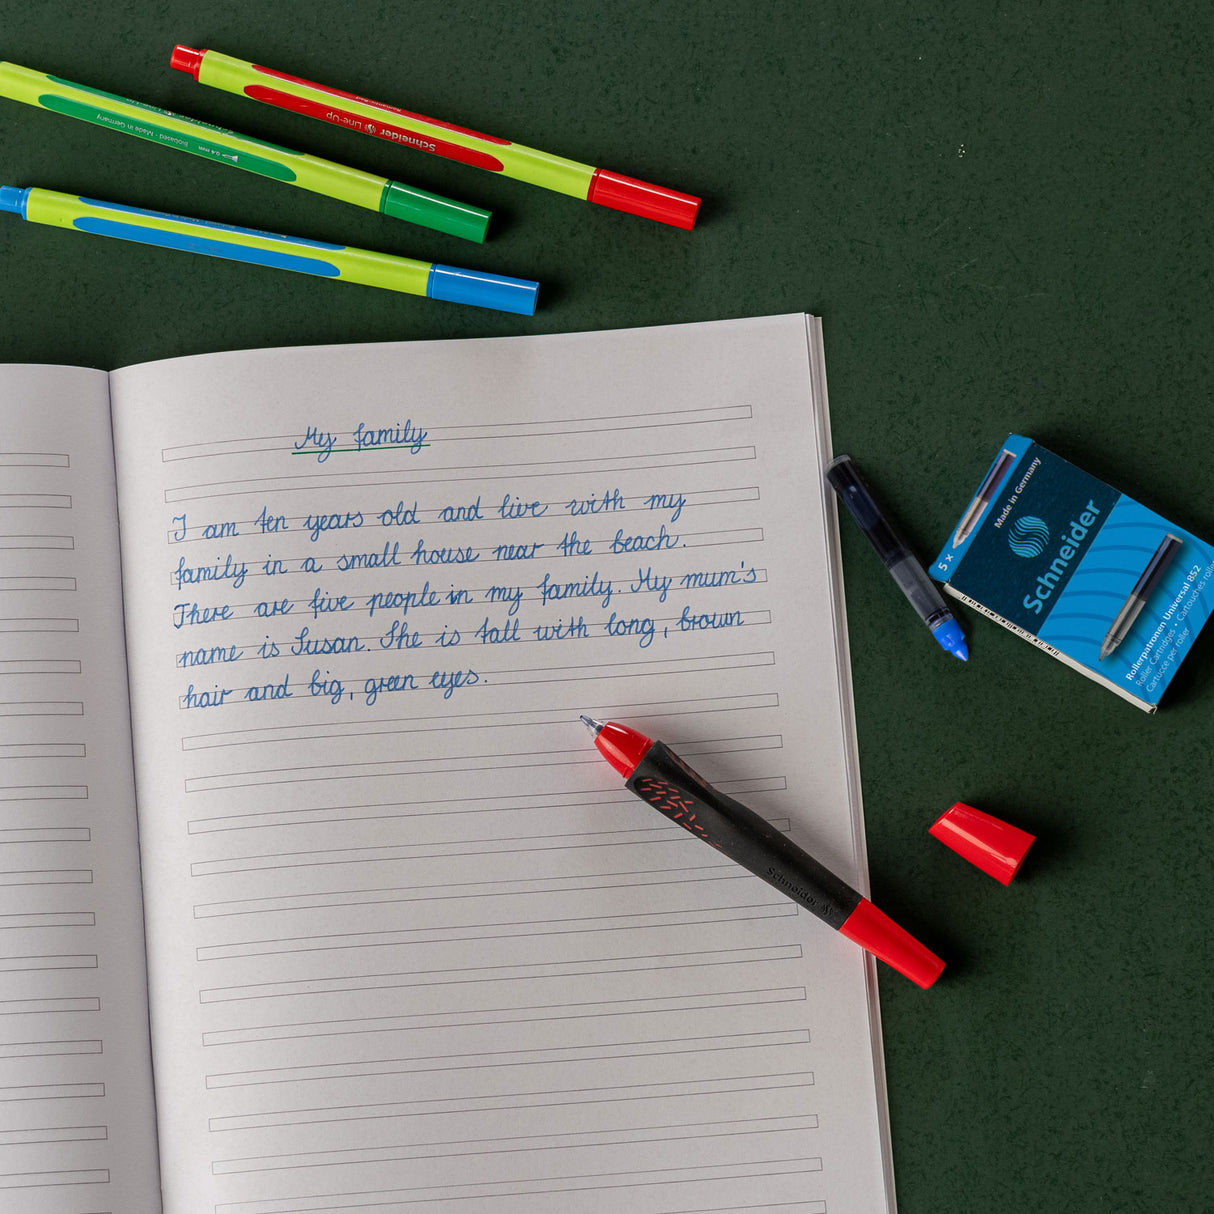 Schneider Line-Up
Biobased · Made in Germany
0.4 mm
My family
I am ten years old and live with my
family in a small house near the beach.
There are five people in my family. My mum's
name is Susan. She is tall with long, brown
hair and big, green eyes.
5 x
Made in Germany
Schneider
Rollerpatronen Universal 852
Roller Cartridges • Cartouches roller
Cartucce per roller
Schneider